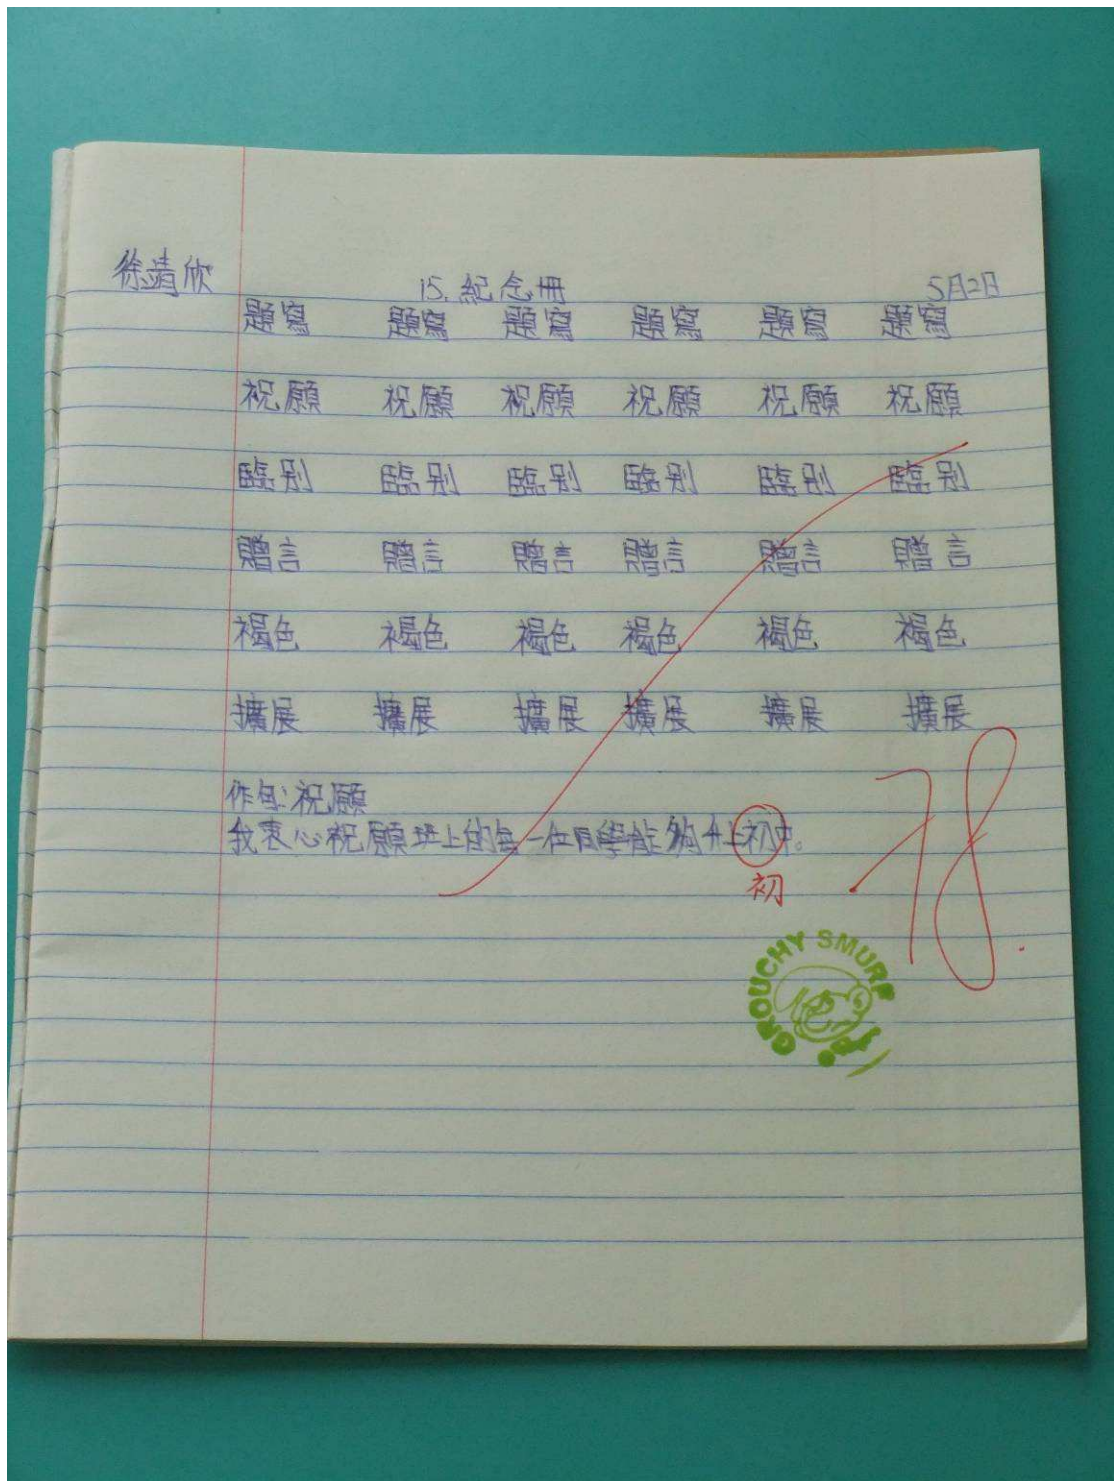 徐靖欣 15.紀念冊 5月2日
題寫 題寫 題寫 題寫 題寫 題寫
祝願 祝願 祝願 祝願 祝願 祝願
臨別 臨別 臨別 臨別 臨別 臨別
贈言 贈言 贈言 贈言 贈言 贈言
褐色 褐色 褐色 褐色 褐色 褐色
擴展 擴展 擴展 擴展 擴展 擴展
作句:祝願
我衷心祝願班上的每一位同學能夠升上初中。
初
78.
GROUCHY SMURF